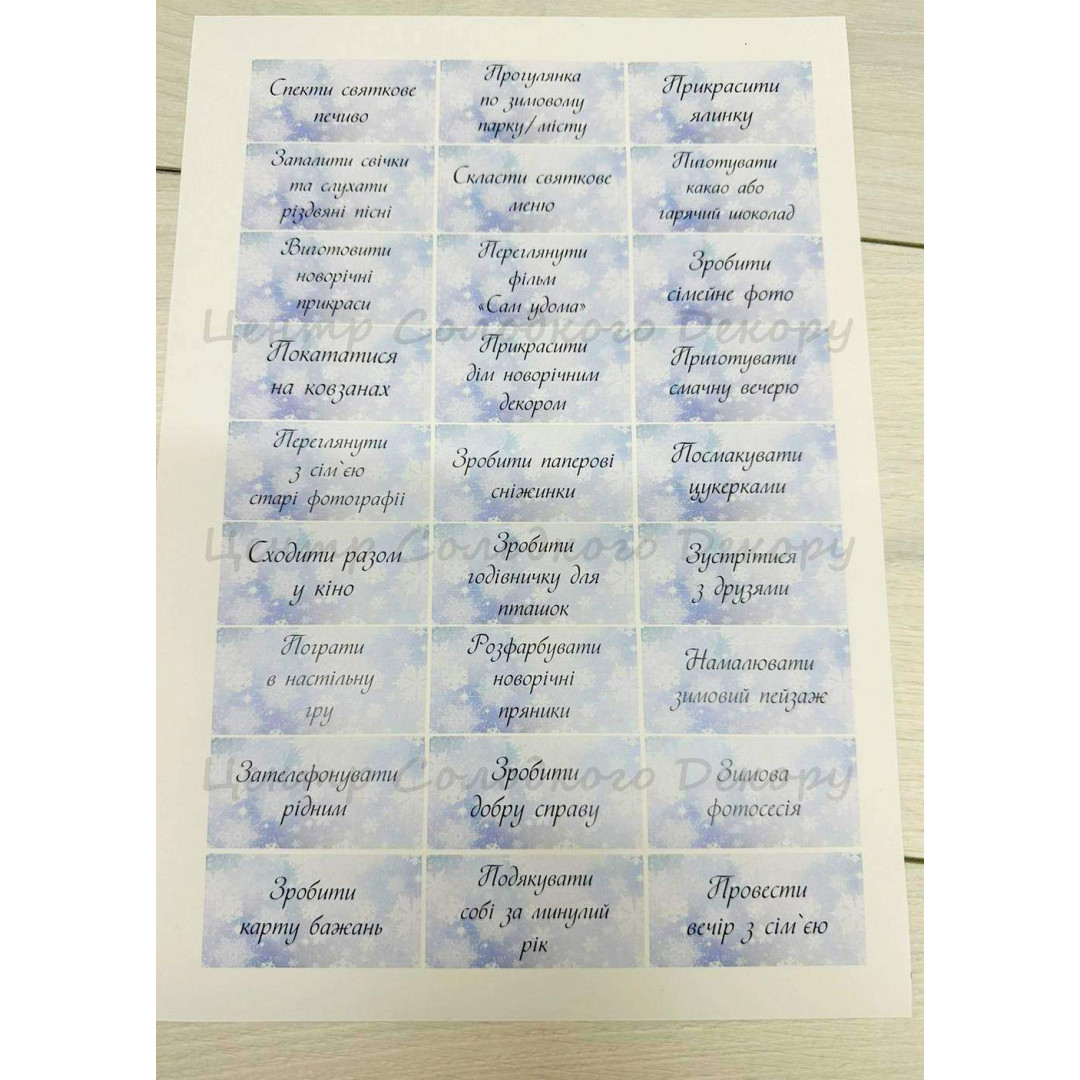 Спекти святкове
печиво
Прогулянка
по зимовому
парку/місту
Прикрасити
ялинку
Запалити свічки
та слухати
різдвяні пісні
Скласти святкове
меню
Пиготувати
какао або
гарячий шоколад
Виготовити
новорічні
прикраси
Переглянути
фільм
«Сам удома»
Зробити
сімейне фото
Центр Солодкого Декору
Покататися
на ковзанах
Прикрасити
дім новорічним
декором
Приготувати
смачну вечерю
Переглянути
з сім`єю
старі фотографії
Зробити паперові
сніжинки
Посмакувати
цукерками
Центр Солодкого Декору
Сходити разом
у кіно
Зробити
годівничку для
пташок
Зустрітися
з друзями
Пограти
в настільну
гру
Розфарбувати
новорічні
пряники
Намалювати
зимовий пейзаж
Центр Солодкого Декору
Зателефонувати
рідним
Зробити
добру справу
Зимова
фотосесія
Зробити
карту бажань
Подякувати
собі за минулий
рік
Провести
вечір з сім`єю